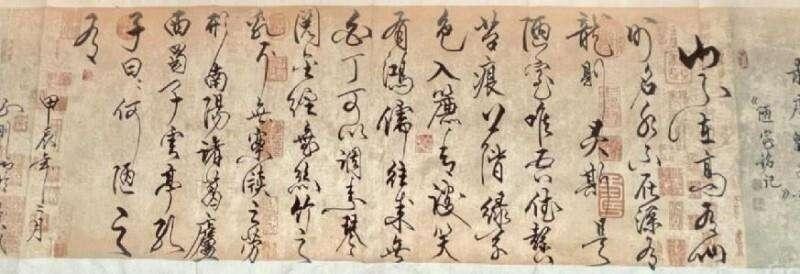 《陋室铭记》
山不在高有仙
则名水不在深有
龍則灵斯是
陋室惟吾德馨
苔痕上階緑草
色入簾青談笑
有鴻儒往來無
白丁可以調素琴
閱金經無絲竹之
乱耳無案牘之劳
形南陽諸葛廬
西蜀子雲亭孔
子曰何陋之
有
甲辰年三月